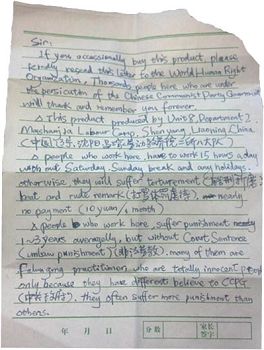 Sir:
If you occassionally buy this product, please
kindly resend this letter to the World Human Right
Organization. Thousands people here who are under
the persicution of the Chinese Communist Party Government
will thank and remember you forever.
This product produced by Unit 8, Department 2,
Mazhanjia Labour Camp, Shenyang, Liaoning, China
(中国, 辽宁, 沈阳, 二所八大队)
people who work here, have to work 15 hours a day
with out Saturday, Sunday break and any holidays,
otherwise, they will suffer torturement
beat and rude remark nearly
no payment (10 yuan/1 month)
people who work here, suffer punishment nearly
1~3 years averagelly, but without Court Sentence
(unlaw punishment) (非法劳教). many of them are
Falun gong practitioner, who are totally innocent people
only because they have different believe to CCPG
they often suffer more punishment than
others.
年 月 日
分数
家长
签字